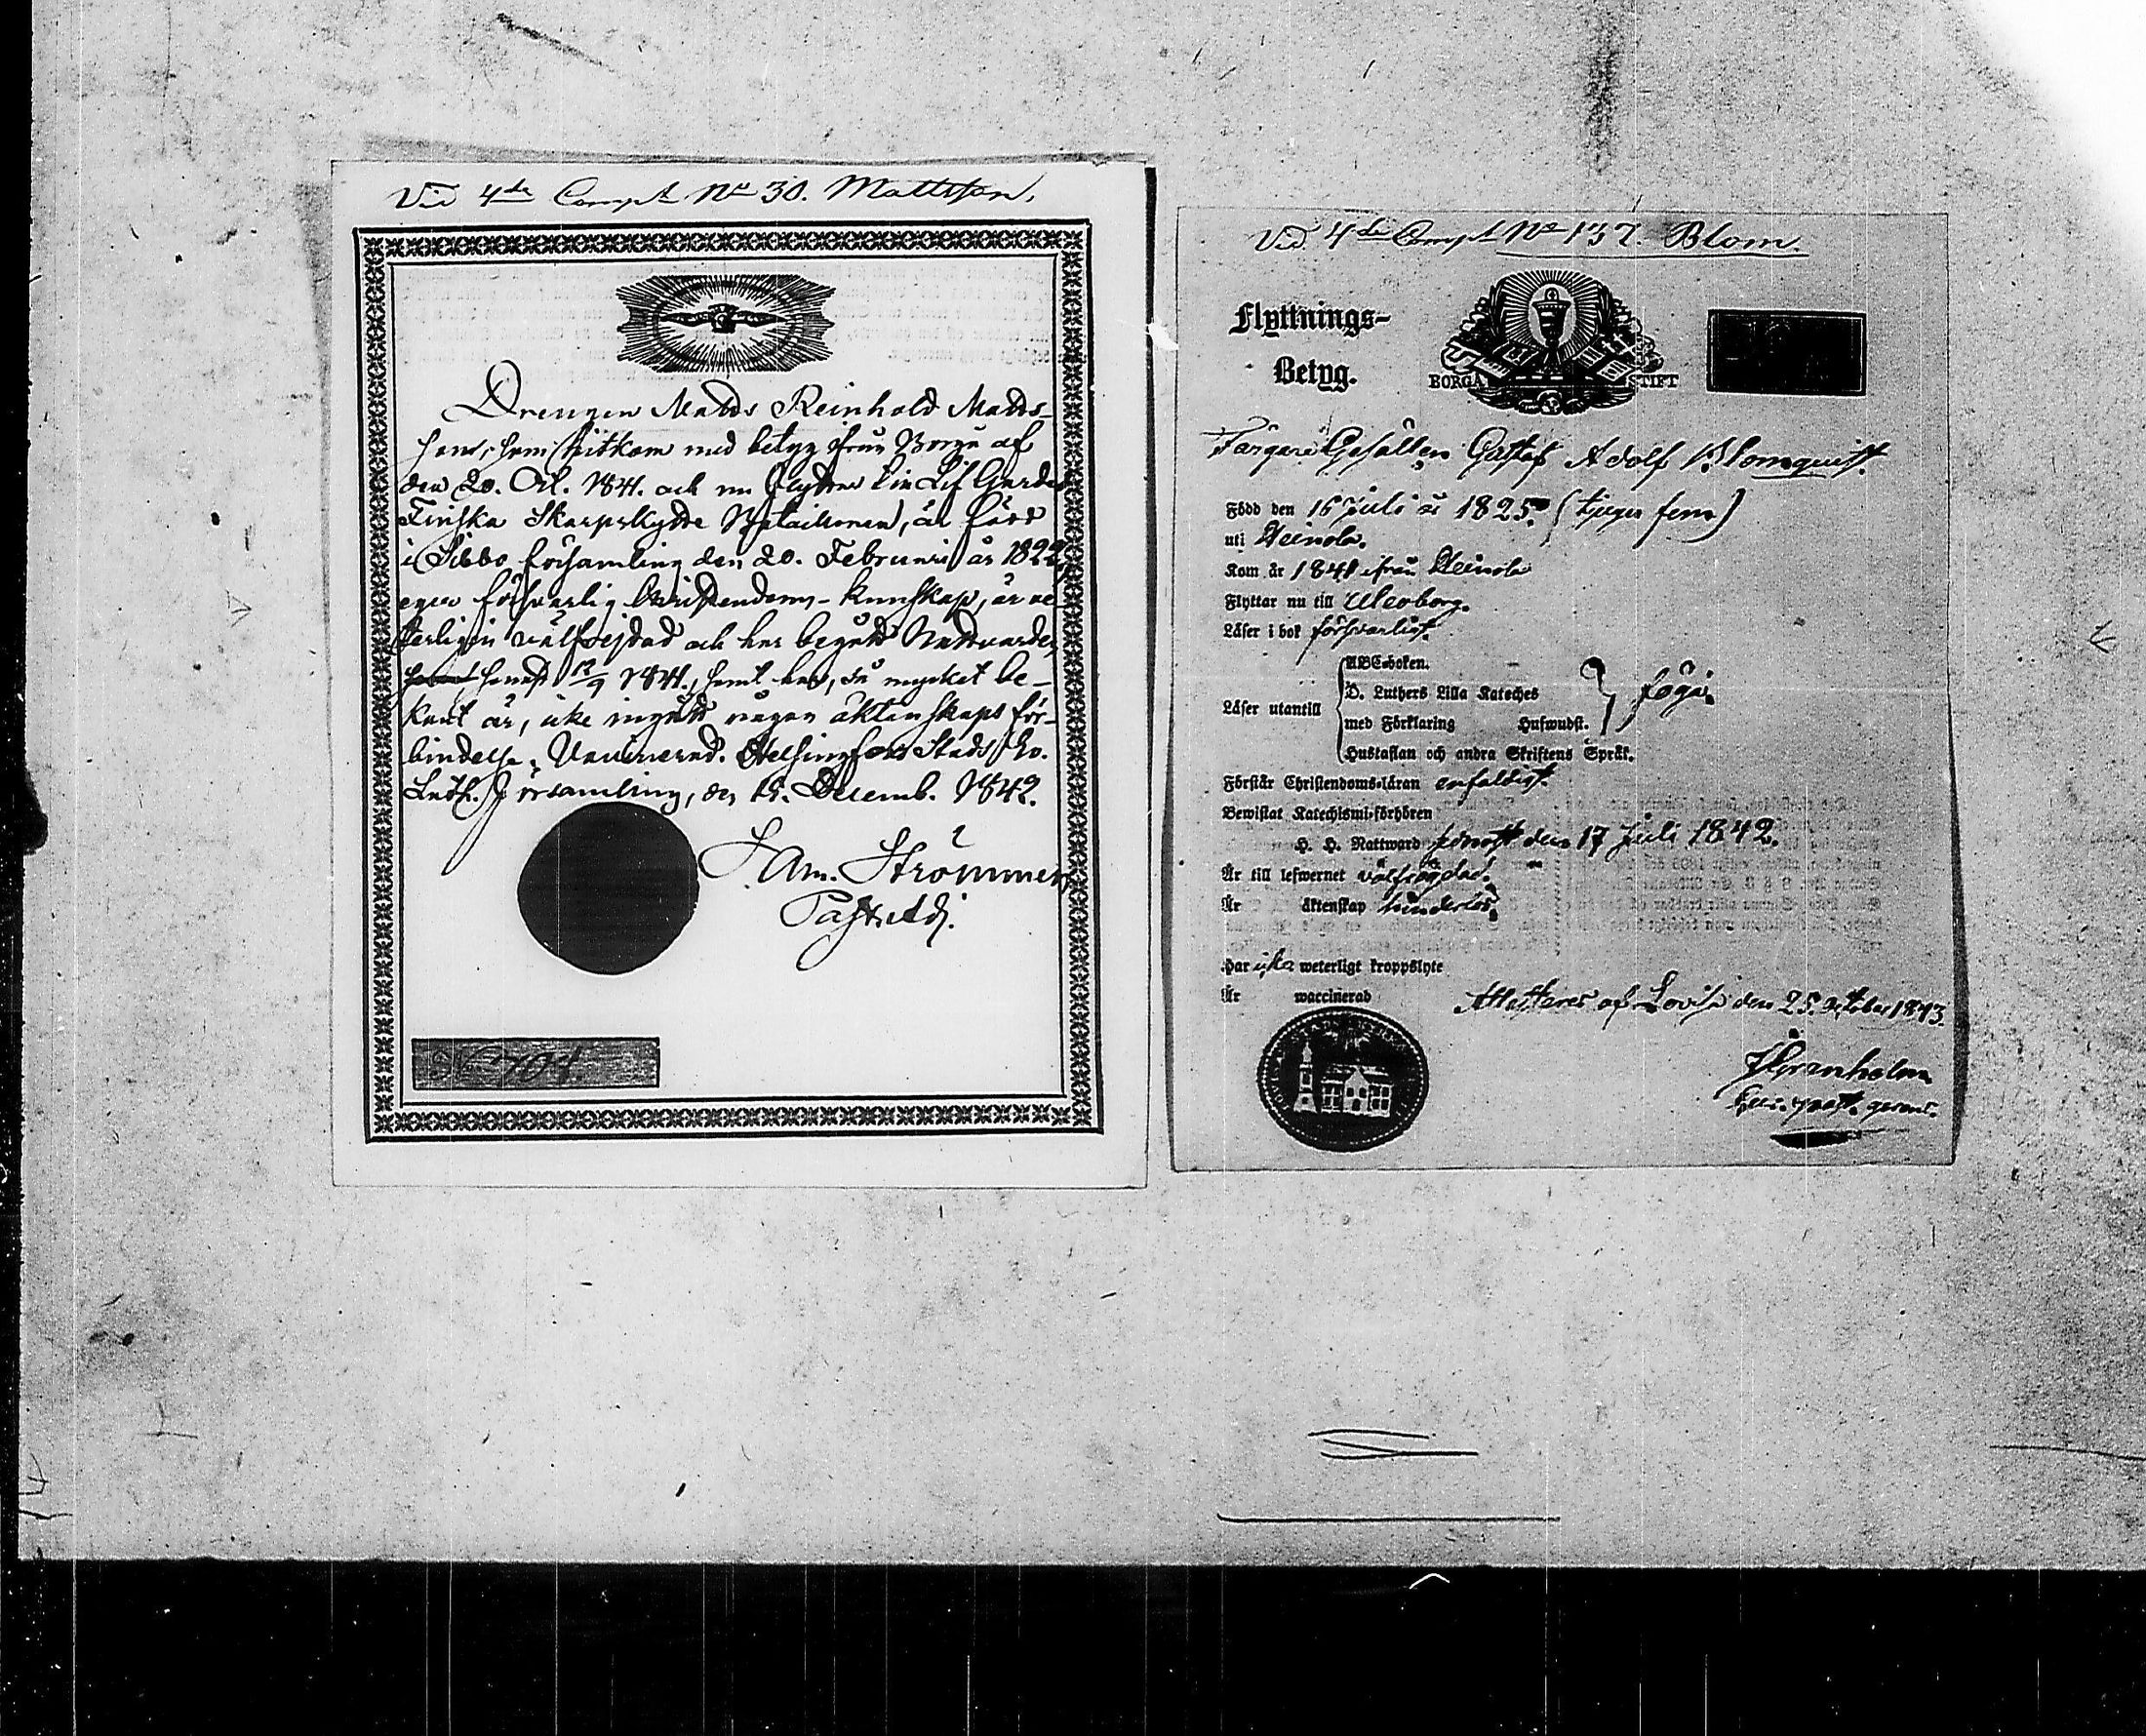 Vid 4de Comp. No 30. Mattsson.
Drengen Matts Reinhold Matts-
son, som hitkom med betyg ifrån Borgå af
den 20. Oct. 1841. och nu flyttar till Lif Gardes
Finska Skarpskytte Bataillonen, är född
i Sibbo församling den 20. Februari år 1822,
eger försvarlig Christendoms-kunskap, är ve-
terligen välfrejdad och har begått Nattvarden
senast 12/9 1841, samt har, så mycket be-
kant är, icke ingått någon äktenskaps för-
bindelse. Vaccinerad. Helsingfors Stads Sv.
Luth. Församling, den 15. Decemb. 1842.
Am. Strömmer
Past. Adj.
No 704.
Vid 4de Comp. No 137. Blom.
Flyttnings-
Betyg.
BORGÅ STIFT
Färgare Gesällen Gustaf Adolf Blomquist.
Född den 16 Juli år 1825. (tjugu fem)
uti Heinola.
Kom år 1841 ifrån Heinola
Flyttar nu till Uleoborg.
Läser i bok försvarligt.
Läser utantill
ABC-boken.
D. Luthers Lilla Kateches
med Förklaring Hufwudst.
Hustaflan och andra Skriftens Språk.
föga.
Förstår Christendoms-läran enfaldigt.
Bewistat Katechismi-förhören
H. H. Nattward senast den 17 Juli 1842.
Är till lefwernet välfrägdad.
Är äktenskap hinderlös.
Har icke weterligt kroppslyte
Är waccinerad
Attesteras af Lovisa den 25. October 1843.